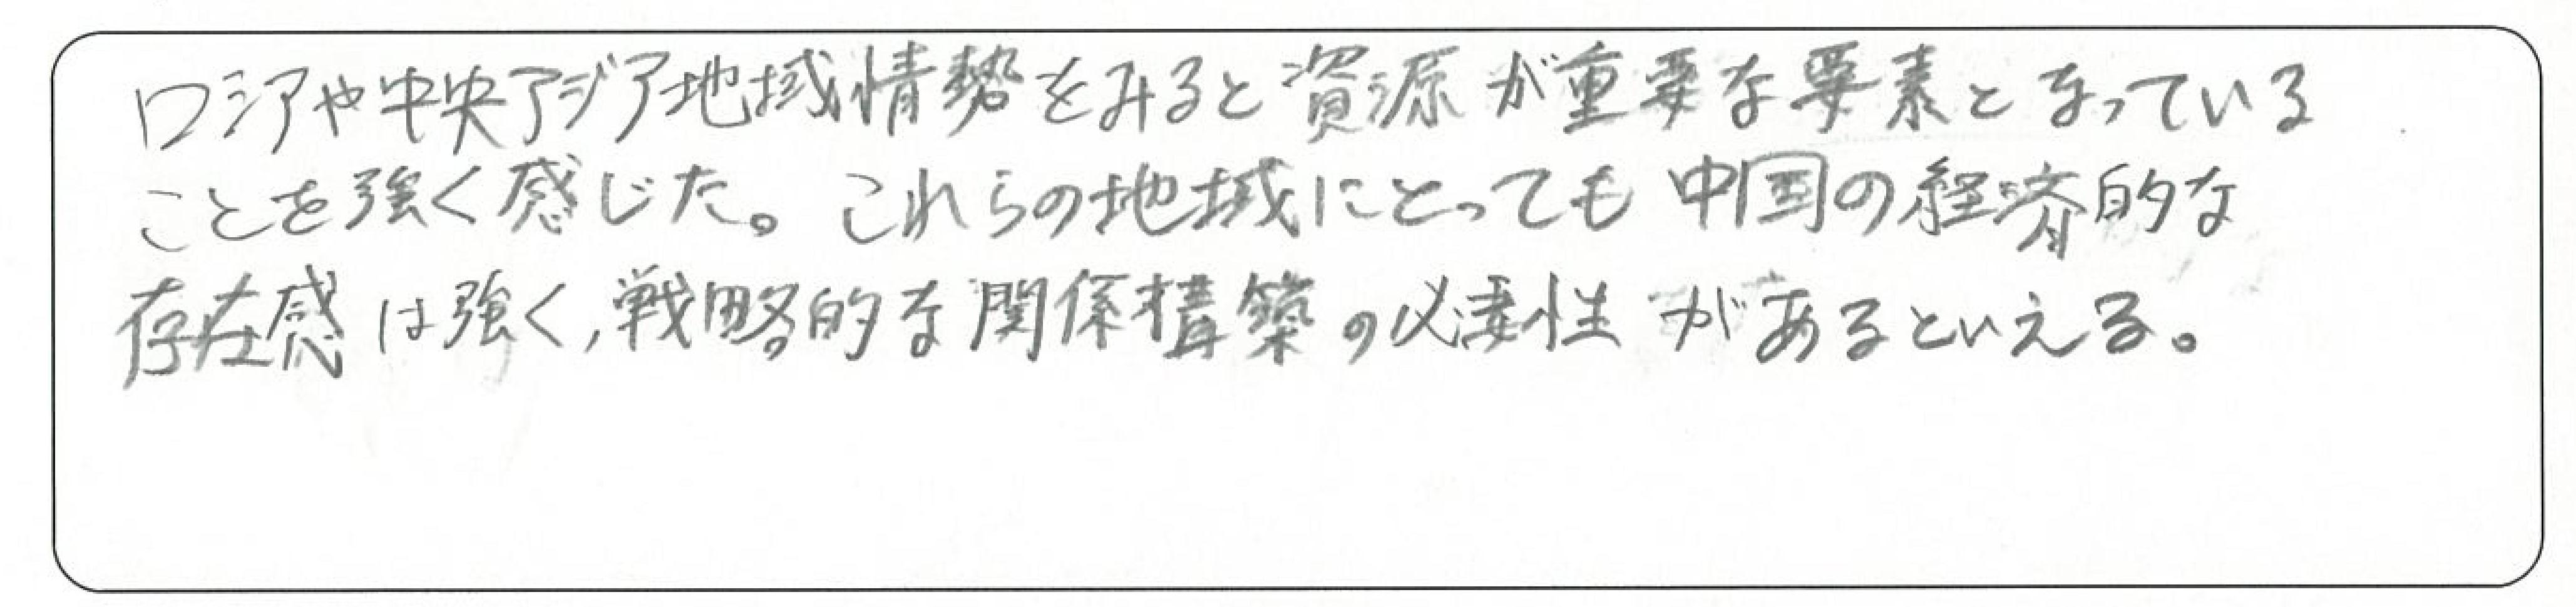 ロシアや中央アジア地域情勢をみると資源が重要な要素となっている
ことを強く感じた。これらの地域にとっても中国の経済的な
存在感は強く,戦略的な関係構築の必要性があるといえる。